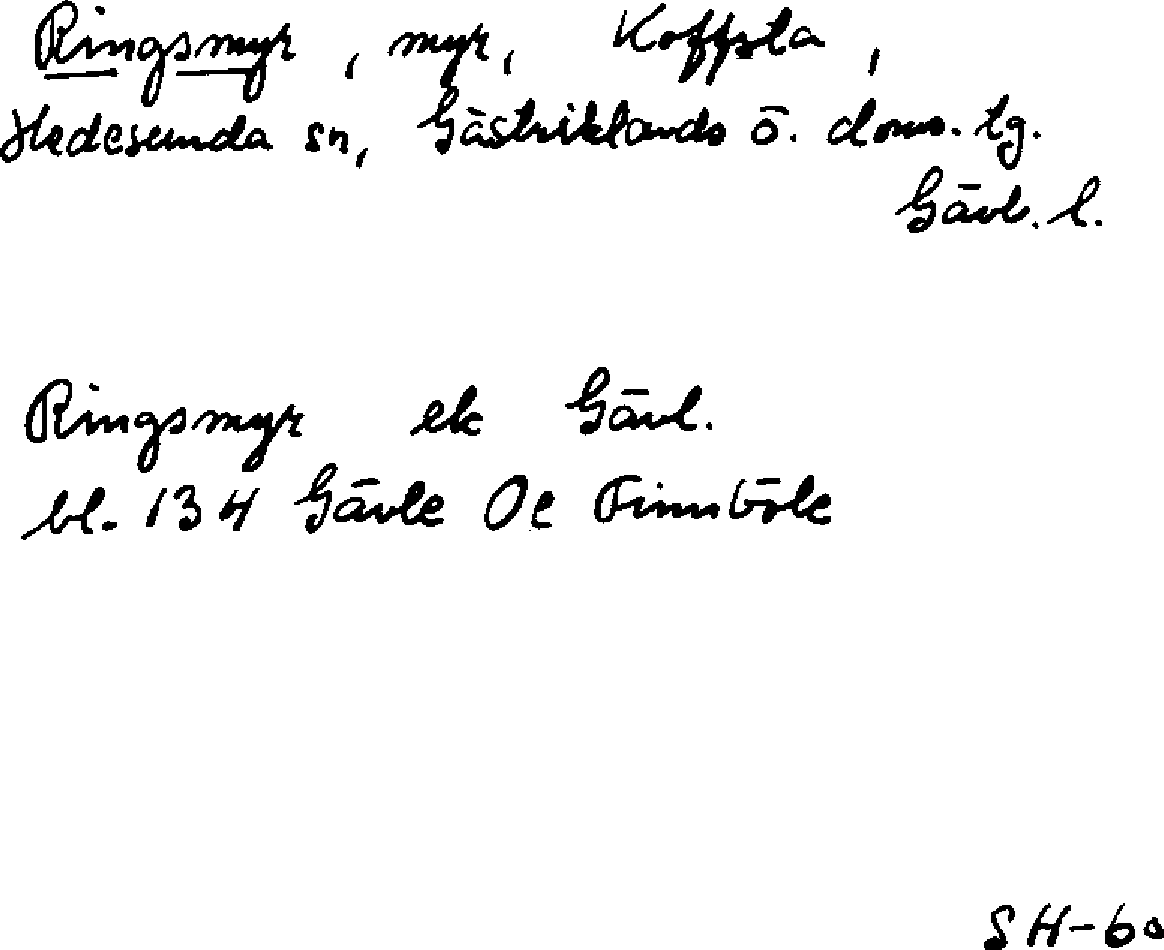 Ringsmyr, myr, Koffsta,
Hedesunda sn, Gästriklands ö. doms. tg.
Gävl. l.
Ringsmyr ek Gävl.
bl. 134 Gävle Oe Finnböle
SH-60